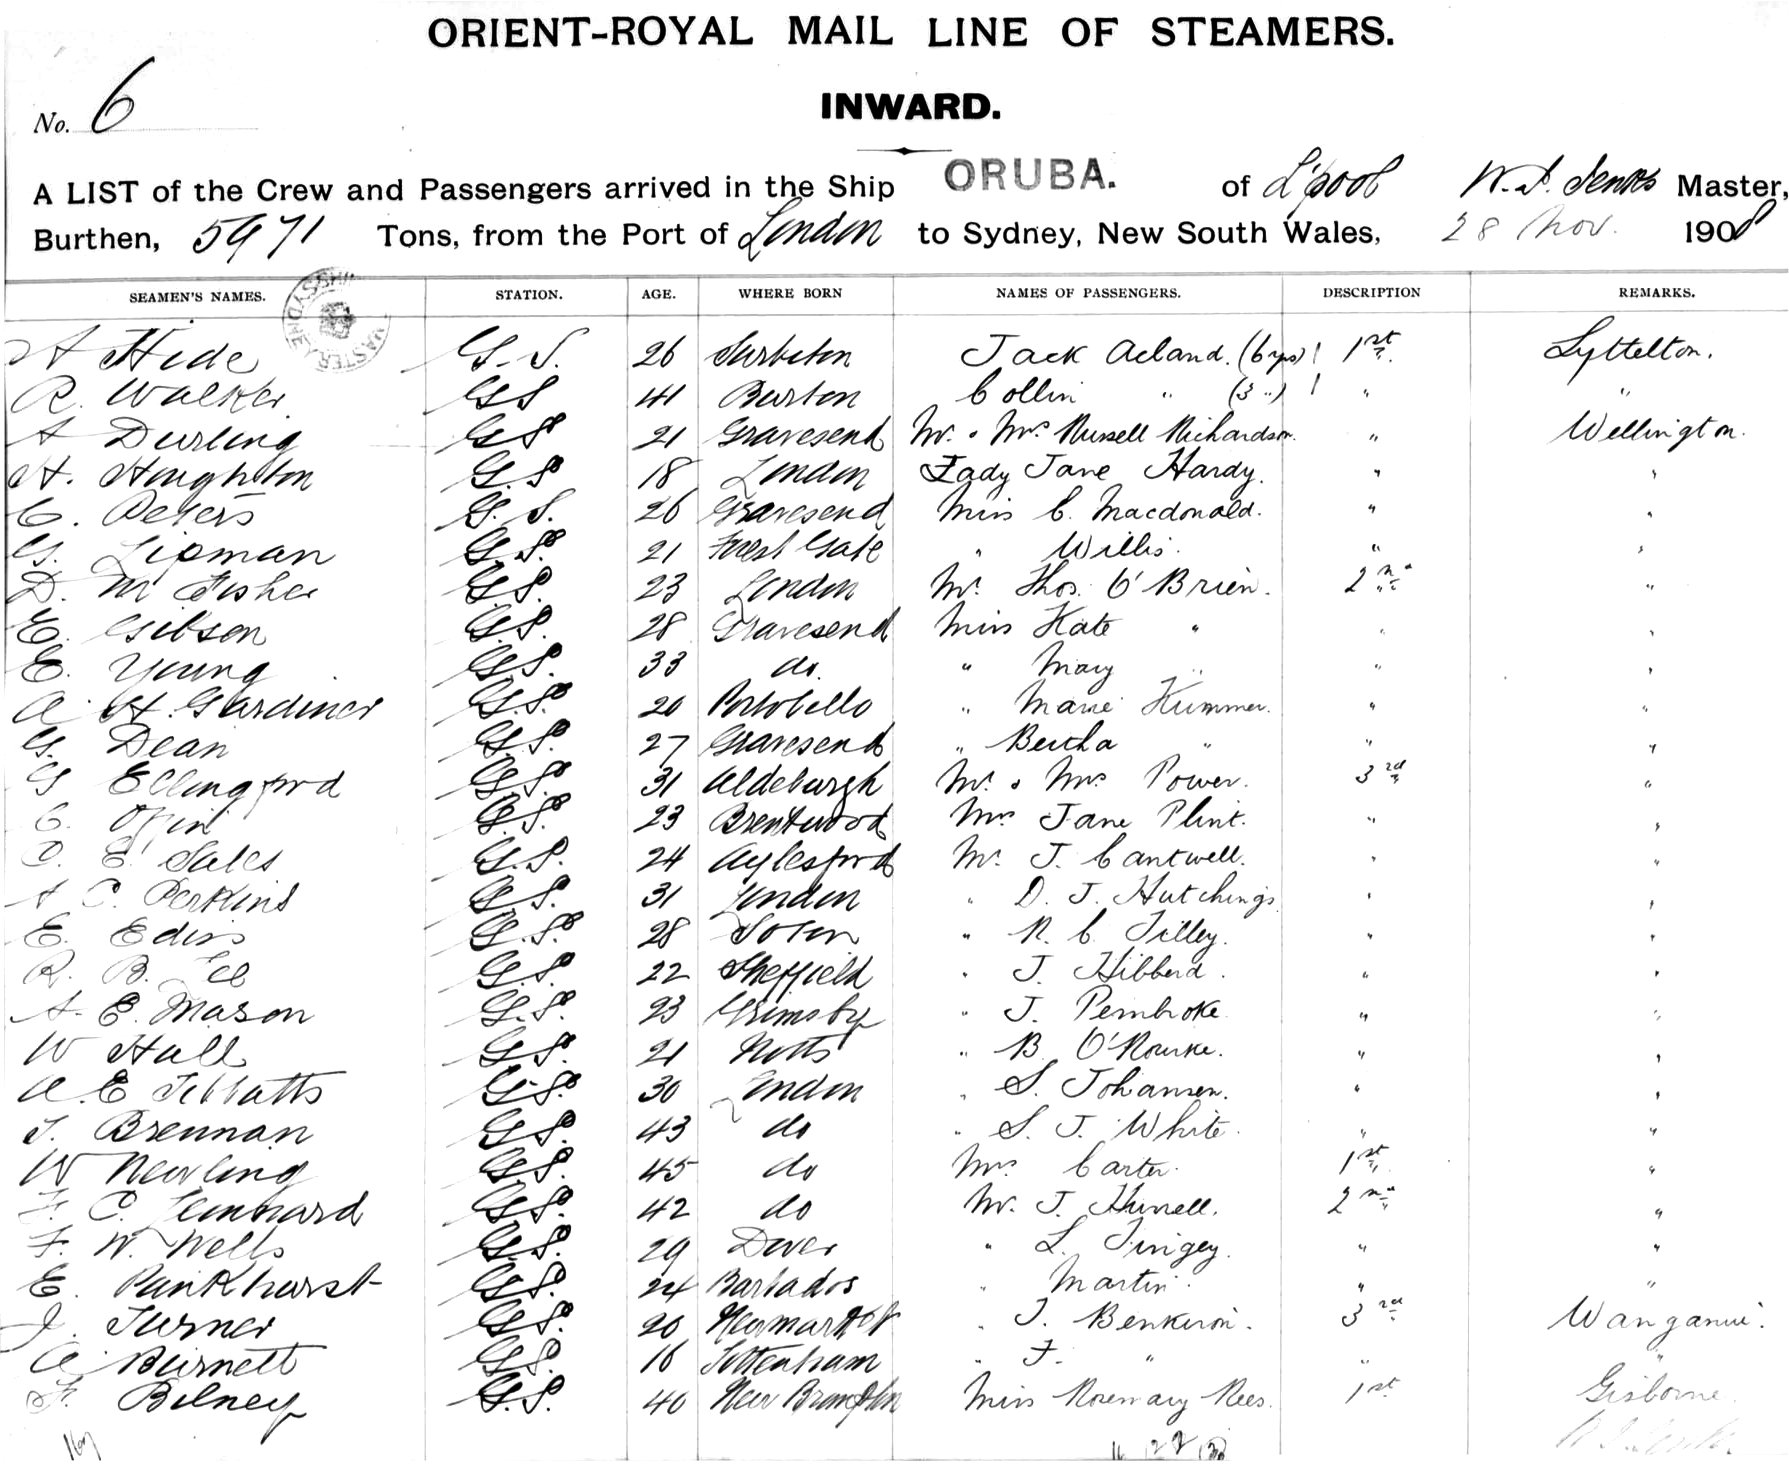 ORIENT-ROYAL MAIL LINE OF STEAMERS.
INWARD.
No. 6
A LIST of the Crew and Passengers arrived in the Ship ORUBA. of L'pool W. S. Jenks Master,
Burthen, 5971 Tons, from the Port of London to Sydney, New South Wales, 28 Nov. 1908
SEAMEN'S NAMES. STATION. AGE. WHERE BORN NAMES OF PASSENGERS. DESCRIPTION REMARKS.
A Hide G.S. 26 Surbiton Jack Acland. (6 yrs) 1 1st Lyttelton.
R. Walker GS 41 Burton Collin " (3 ") 1 " "
A Durling GS 21 Gravesend Mr. & Mrs Russell Richardson. " Wellington.
H. Houghton GS 18 London Lady Jane Hardy. " "
C. Peters G.S. 26 Gravesend Miss C. Macdonald. " "
G. Lipman G.S. 21 Forest Gate " Willis. " "
D. M Fisher GS. 23 London Mr. Thos. O'Brien. 2nd "
E. Gibson GS. 28 Gravesend Miss Kate " " "
E. Young GS. 33 do. " Mary " " "
A. H. Gardiner GS. 20 Portobello " Marie Kummer. " "
G. Dean GS. 27 Gravesend " Bertha " " "
G Ellingford GS. 31 Aldeburgh Mr. & Mrs Power. 3rd "
C. G.S. 23 Brentwood Mrs Jane Plint. " "
E. Sales G.S. 24 Aylesford Mr. J. Cantwell. " "
A C. Perkins G.S. 31 London " D. J. Hutchings " "
E. Edis G.S. 28 Soton " R. C. Tilley. " "
R. B. G.S. 22 Sheffield " J. Hibberd. " "
A. E. Mason G.S. 23 Grimsby " J. Pembroke " "
W Hall GS. 21 Notts " B. O'Rourke. " "
A. E Tebbatts GS. 30 London " S. Johansen. " "
T. Brennan GS. 43 do " S. J. White. " "
W Newling GS. 45 do Mrs Carter. 1st "
F. C. GS. 42 do Mr. J. Hunell. 2nd "
F. W. Wells GS. 29 Dover " L. Tingey. " "
E. Pankhurst GS. 24 Barbados " Martin. " "
J. Turner GS. 20 Newmarket " J. Benkeron. 3rd Wanganui.
A. Burnett GS. 16 Tottenham " F. " " "
F. Bilney G.S. 40 New Brompton Miss Rosemary Rees. 1st Gisborne.